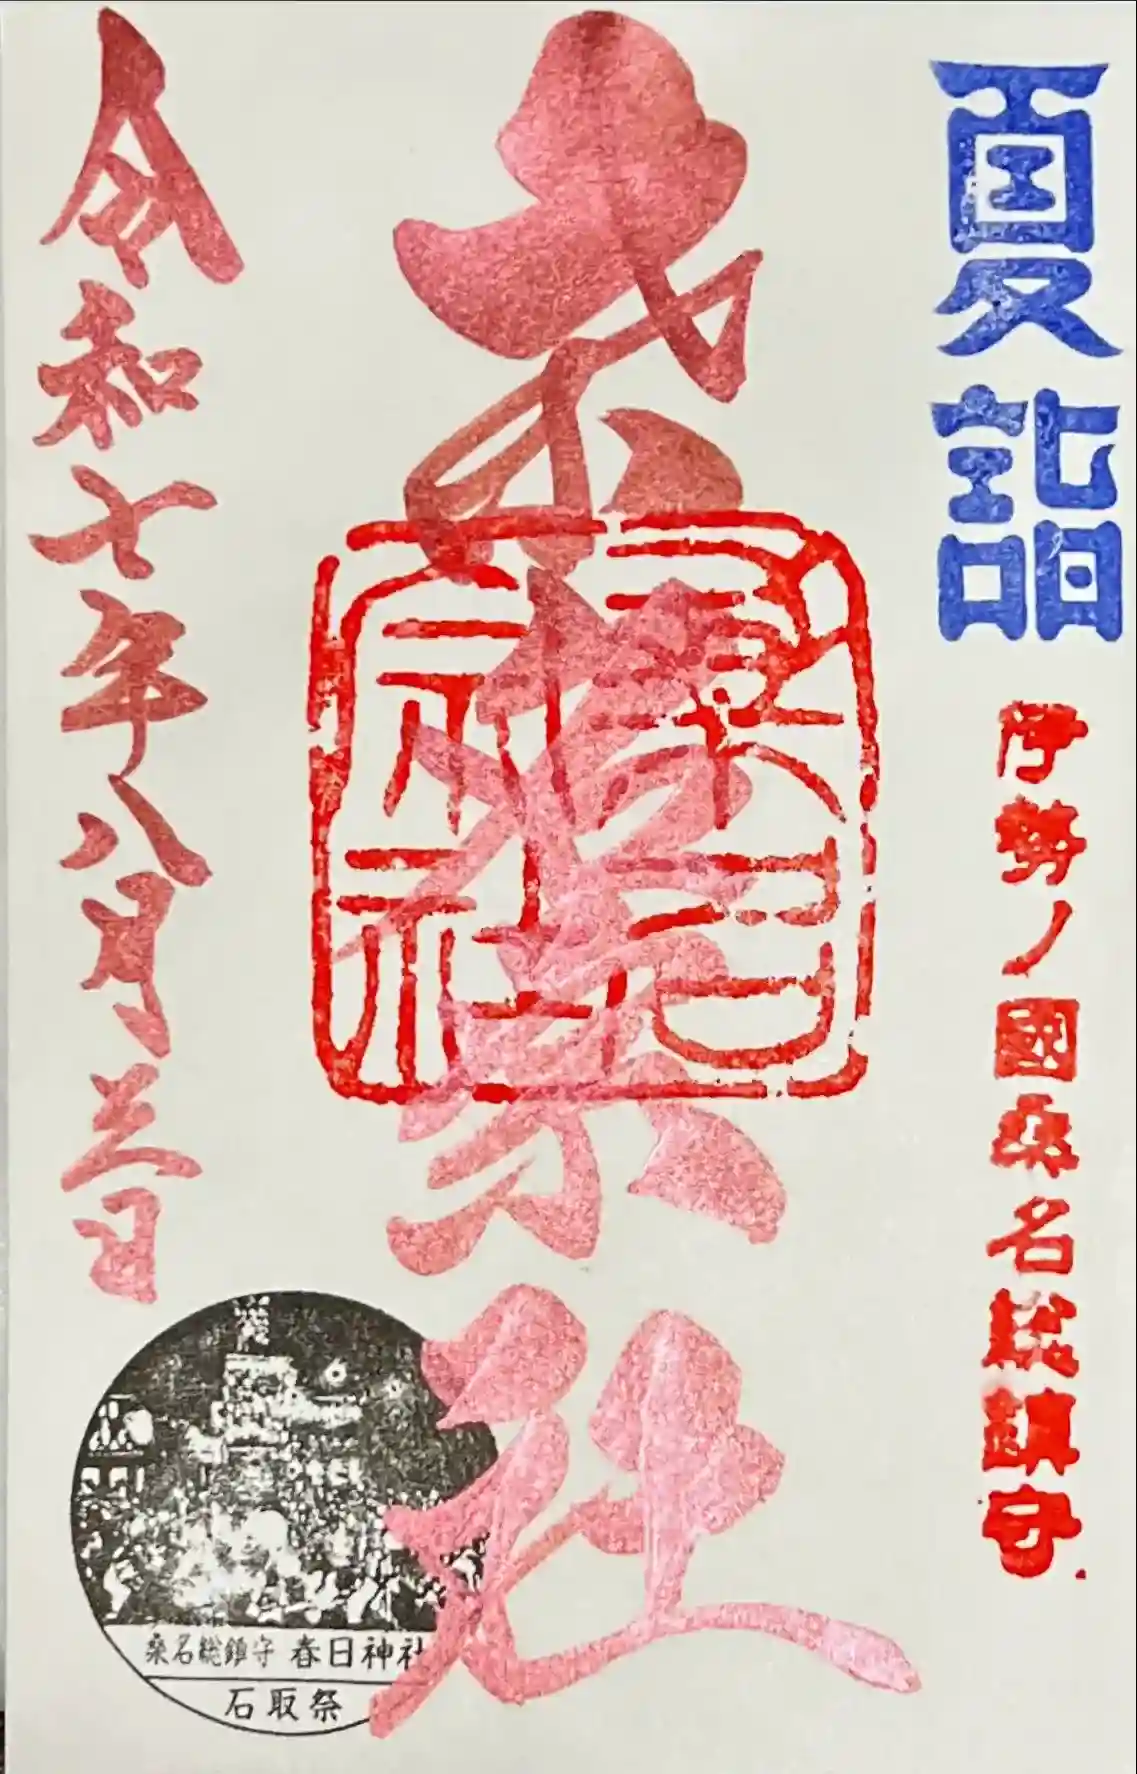 夏詣
伊勢ノ國桑名総鎮守
桑名宗社
桑名宗社
令和七年八月三日
桑名総鎮守 春日神社
石取祭